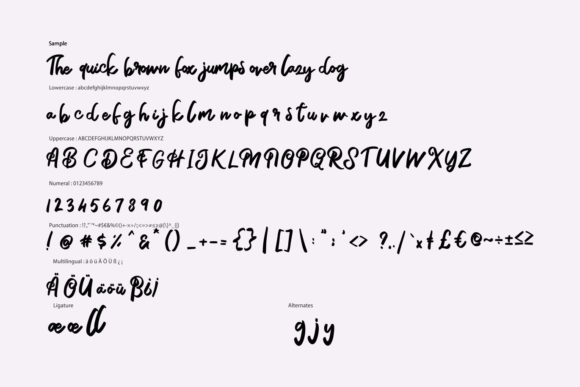 Sample
The quick brown fox jumps over lazy dog
Lowercase : abcdefghijklmnopqrstuvwxyz
a b c d e f g h i j k l m n o p q r s t u v w x y z
Uppercase : ABCDEFGHIJKLMNOPQRSTUVWXYZ
A B C D E F G H I J K L M N O P Q R S T U V W X Y Z
Numeral : 0123456789
1 2 3 4 5 6 7 8 9 0
! @ # $ % ^ & * ( ) _ + - = { } | [ ] \ : " ; ' < > ? . , / ` × ¢ £ € @ ~ ÷ ± ≤ ≥
Multilingual : ä ö ü Ä Ö Ü ß ¿ ¡
Ä Ö Ü ä ö ü ß ¿ ¡
Ligature Alternates
g j y